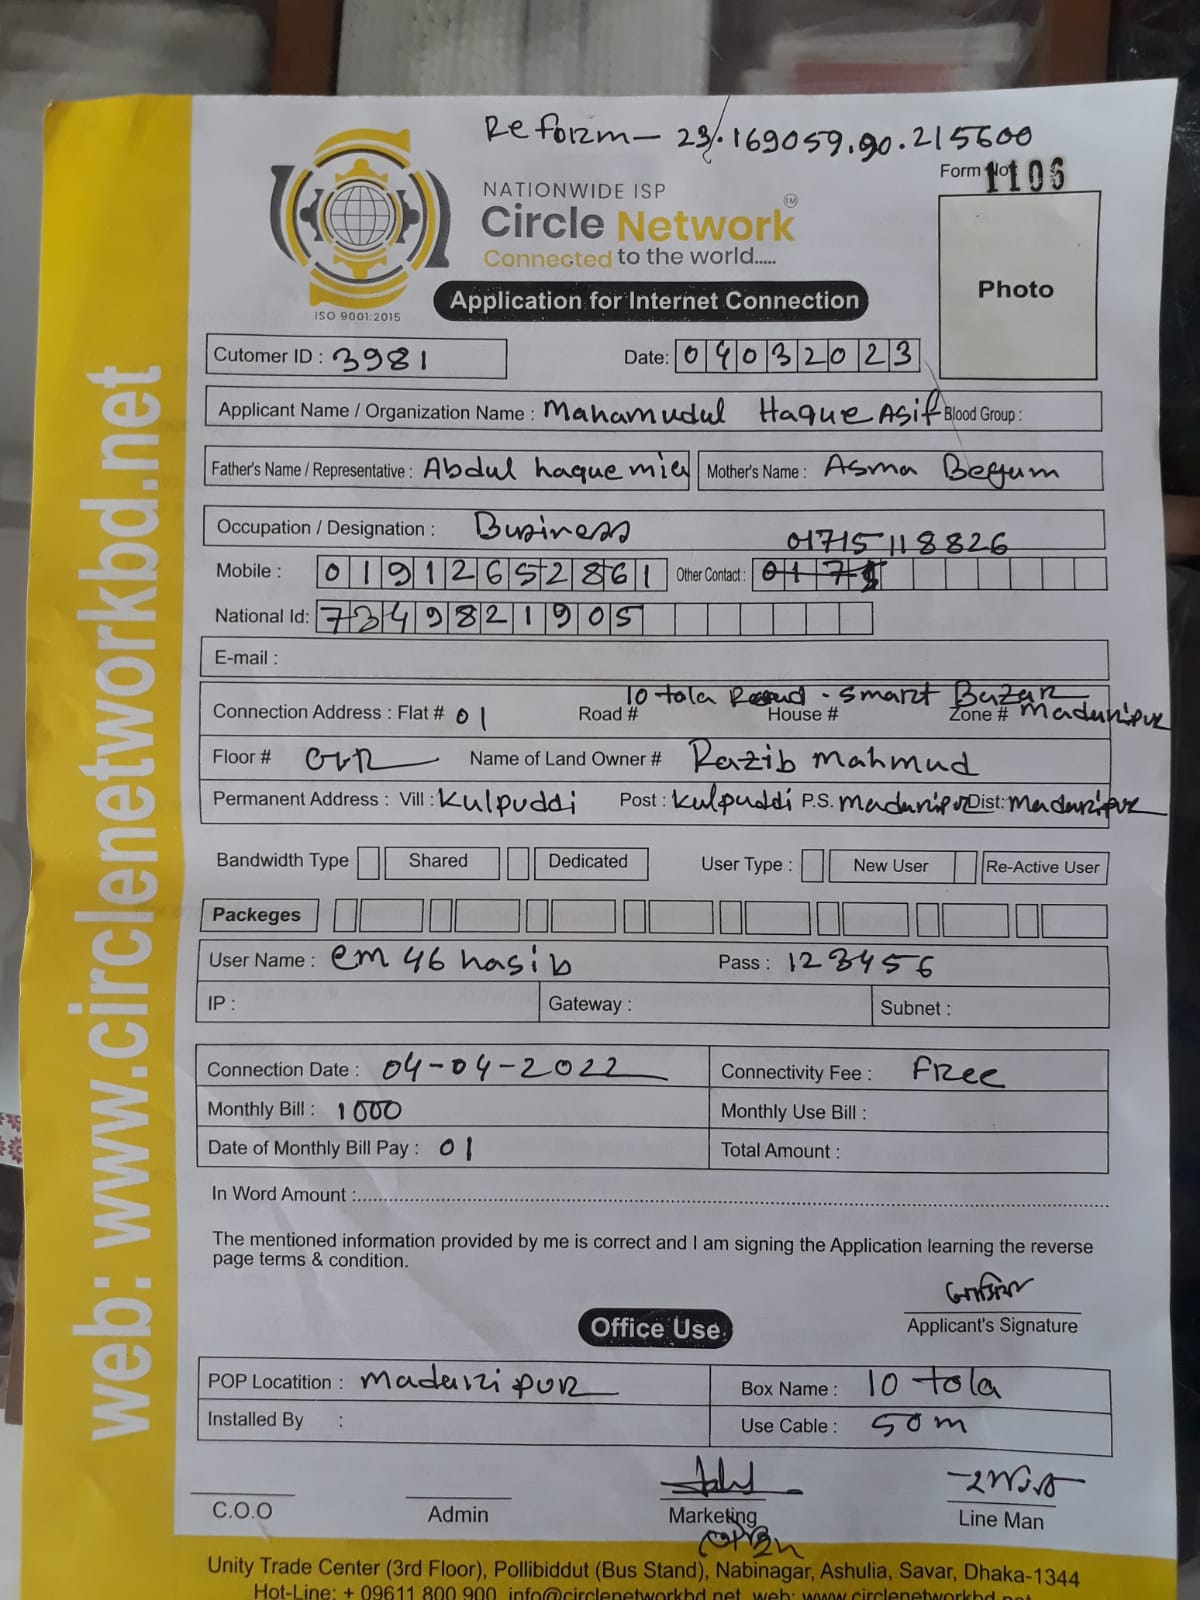 Reform - 23.169059,90.215600
Form No: 1106
NATIONWIDE ISP
Circle Network TM
Connected to the world.....
ISO 9001:2015
Application for Internet Connection
Photo
Cutomer ID : 3981 Date: 04032023
Applicant Name / Organization Name : Mahamudul Haque Asif Blood Group :
Father's Name / Representative : Abdul haque mia Mother's Name : Asma Begum
Occupation / Designation : Business
01715118826
Mobile : 01912652861 Other Contact : 0171
National Id: 7349821905
E-mail :
10 tola Road - Smart Bazar
Connection Address : Flat # 01 Road # House # Zone # Madaripur
Floor # GVR Name of Land Owner # Razib mahmud
Permanent Address : Vill : Kulpuddi Post : Kulpuddi P.S. madaripur Dist: madaripur
Bandwidth Type Shared Dedicated User Type : New User Re-Active User
Packeges
User Name : em 46 hasib Pass : 123456
IP : Gateway : Subnet :
Connection Date : 04-04-2022 Connectivity Fee : Free
Monthly Bill : 1000 Monthly Use Bill :
Date of Monthly Bill Pay : 01 Total Amount :
In Word Amount :
The mentioned information provided by me is correct and I am signing the Application learning the reverse
page terms & condition.
Applicant's Signature
Office Use
POP Locatition : madaripur Box Name : 10 tola
Installed By : Use Cable : 50m
C.O.O Admin Marketing Line Man
Unity Trade Center (3rd Floor), Pollibiddut (Bus Stand), Nabinagar, Ashulia, Savar, Dhaka-1344
Hot-Line: + 09611 800 900, info@circlenetworkbd.net, web: www.circlenetworkbd.net
web: www.circlenetworkbd.net